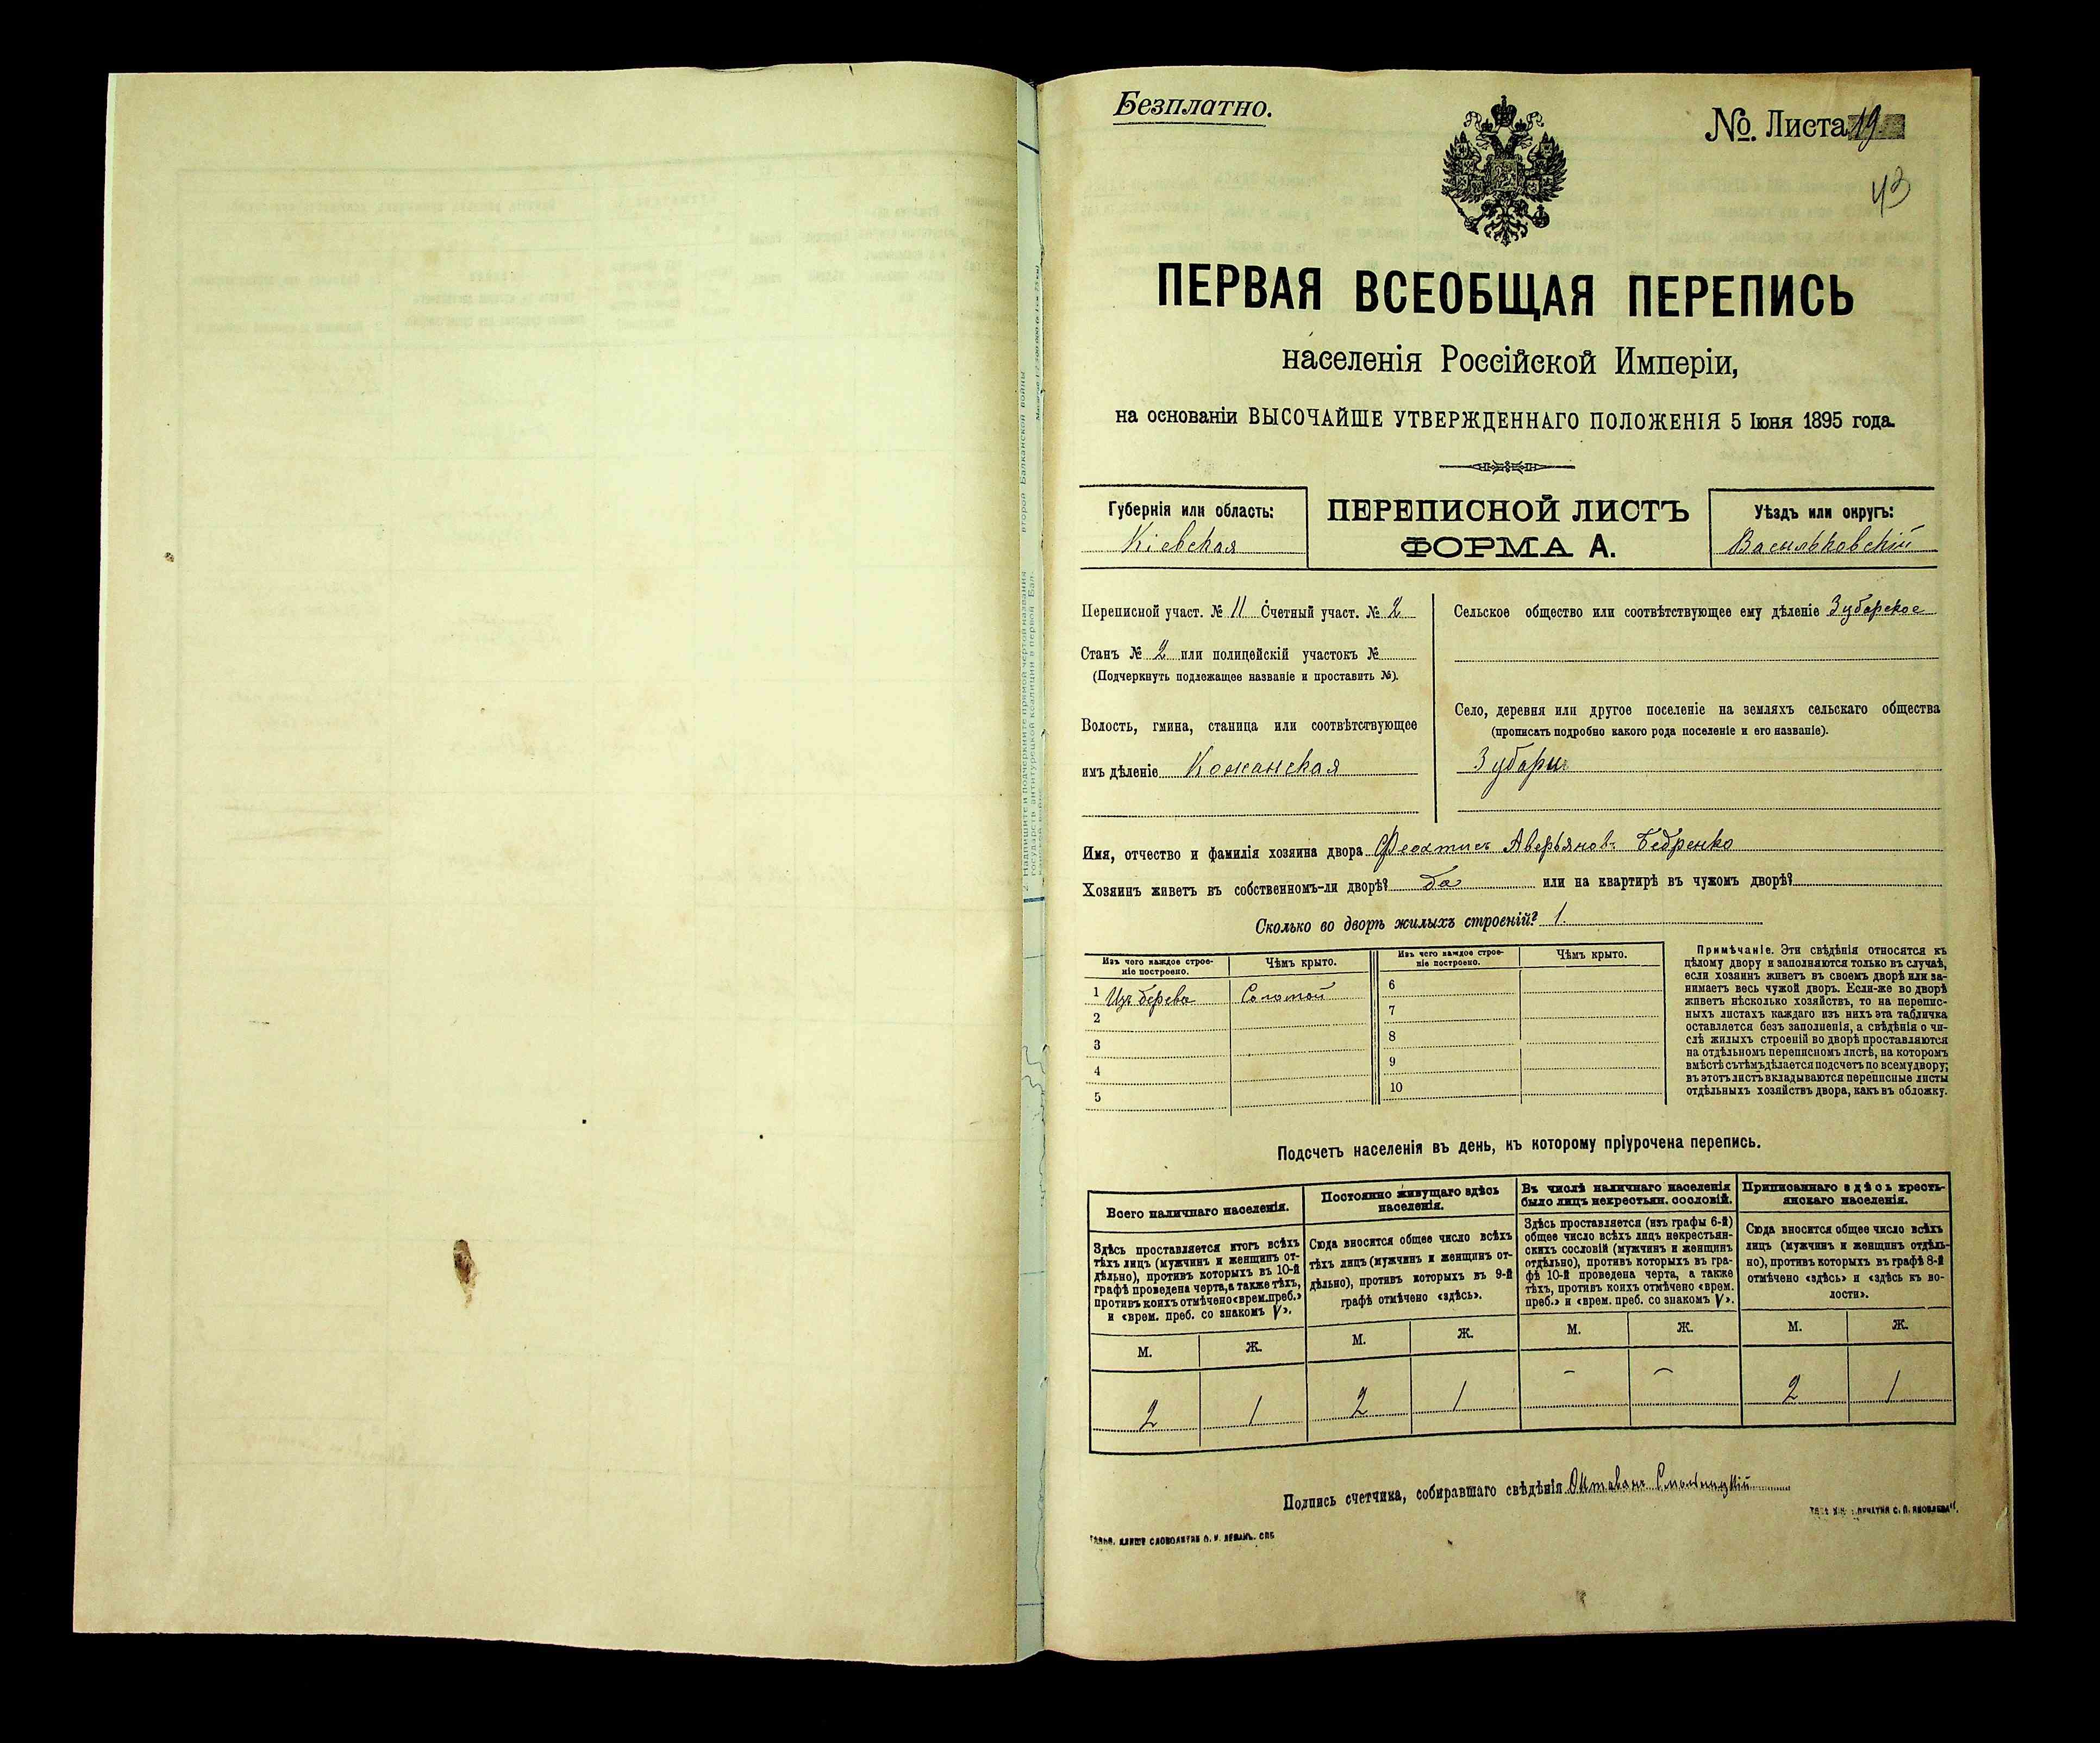 Безплатно.
№ Листа 19
43
ПЕРВАЯ ВСЕОБЩАЯ ПЕРЕПИСЬ
населенія Россійской Имперіи,
на основаніи ВЫСОЧАЙШЕ УТВЕРЖДЕННАГО ПОЛОЖЕНІЯ 5 Іюня 1895 года.
Губернія или область:
Кіевская
ПЕРЕПИСНОЙ ЛИСТЪ
ФОРМА А.
Уѣздъ или округъ:
Васильковскій
Переписной участ. № 11 Счетный участ. № 2
Станъ № 2 или полицейскій участокъ №
(Подчеркнуть подлежащее названіе и проставить №).
Волость, гмина, станица или соотвѣтствующее
имъ дѣленіе Кожанская
Сельское общество или соотвѣтствующее ему дѣленіе Зубарское
Село, деревня или другое поселеніе на земляхъ сельскаго общества
(прописать подробно какого рода поселеніе и его названіе).
Зубари
Имя, отчество и фамилія хозяина двора Феоктистъ Аверьяновъ Бедренко
Хозяинъ живетъ въ собственномъ-ли дворѣ? да или на квартирѣ въ чужомъ дворѣ?
Сколько во дворѣ жилыхъ строеній? 1.
Изъ чего каждое строе-
ніе построено.
Чѣмъ крыто.
Изъ чего каждое строе-
ніе построено.
Чѣмъ крыто.
1 Изъ дерева Соломой
2
3
4
5
6
7
8
9
10
Примѣчаніе. Эти свѣдѣнія относятся къ
цѣлому двору и заполняются только въ случаѣ,
если хозяинъ живетъ въ своемъ дворѣ или за-
нимаетъ весь чужой дворъ. Если-же во дворѣ
живетъ нѣсколько хозяйствъ, то на перепис-
ныхъ листахъ каждаго изъ нихъ эта табличка
оставляется безъ заполненія, а свѣдѣнія о чи-
слѣ жилыхъ строеній во дворѣ проставляются
на отдѣльномъ переписномъ листѣ, на которомъ
вмѣстѣ съ тѣмъ дѣлается подсчетъ по всему двору;
въ этотъ листъ вкладываются переписные листы
отдѣльныхъ хозяйствъ двора, какъ въ обложку.
Подсчетъ населенія въ день, къ которому пріурочена перепись.
Всего наличнаго населенія.
Здѣсь проставляется итогъ всѣхъ
тѣхъ лицъ (мужчинъ и женщинъ от-
дѣльно), противъ которыхъ въ 10-й
графѣ проведена черта, а также тѣхъ,
противъ коихъ отмѣчено «врем. преб.»
и «врем. преб. со знакомъ V».
Постоянно живущаго здѣсь
населенія.
Сюда вносится общее число всѣхъ
тѣхъ лицъ (мужчинъ и женщинъ от-
дѣльно), противъ которыхъ въ 9-й
графѣ отмѣчено «здѣсь».
Въ числѣ наличнаго населенія
было лицъ некрестьян. сословій.
Здѣсь проставляется (изъ графы 6-й)
общее число всѣхъ лицъ некрестьян-
скихъ сословій (мужчинъ и женщинъ
отдѣльно), противъ которыхъ въ гра-
фѣ 10-й проведена черта, а также
тѣхъ, противъ коихъ отмѣчено «врем.
преб.» и «врем. преб. со знакомъ V».
Приписаннаго здѣсь кресть-
янскаго населенія.
Сюда вносится общее число всѣхъ
лицъ (мужчинъ и женщинъ отдѣль-
но), противъ которыхъ въ графѣ 8-й
отмѣчено «здѣсь» и «здѣсь къ во-
лости».
М. Ж. М. Ж. М. Ж. М. Ж.
2 1 2 1 - - 2 1
Подпись счетчика, собиравшаго свѣдѣнія Октавіанъ